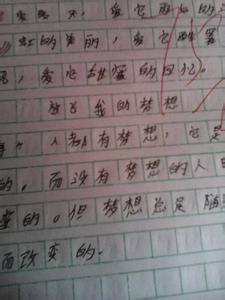 ，爱它的
的美丽，爱它
，爱它甜蜜的回忆。
我的梦想
人都有梦想，它是
的。而没有梦想的人
的。但梦想总是随
而改变的。